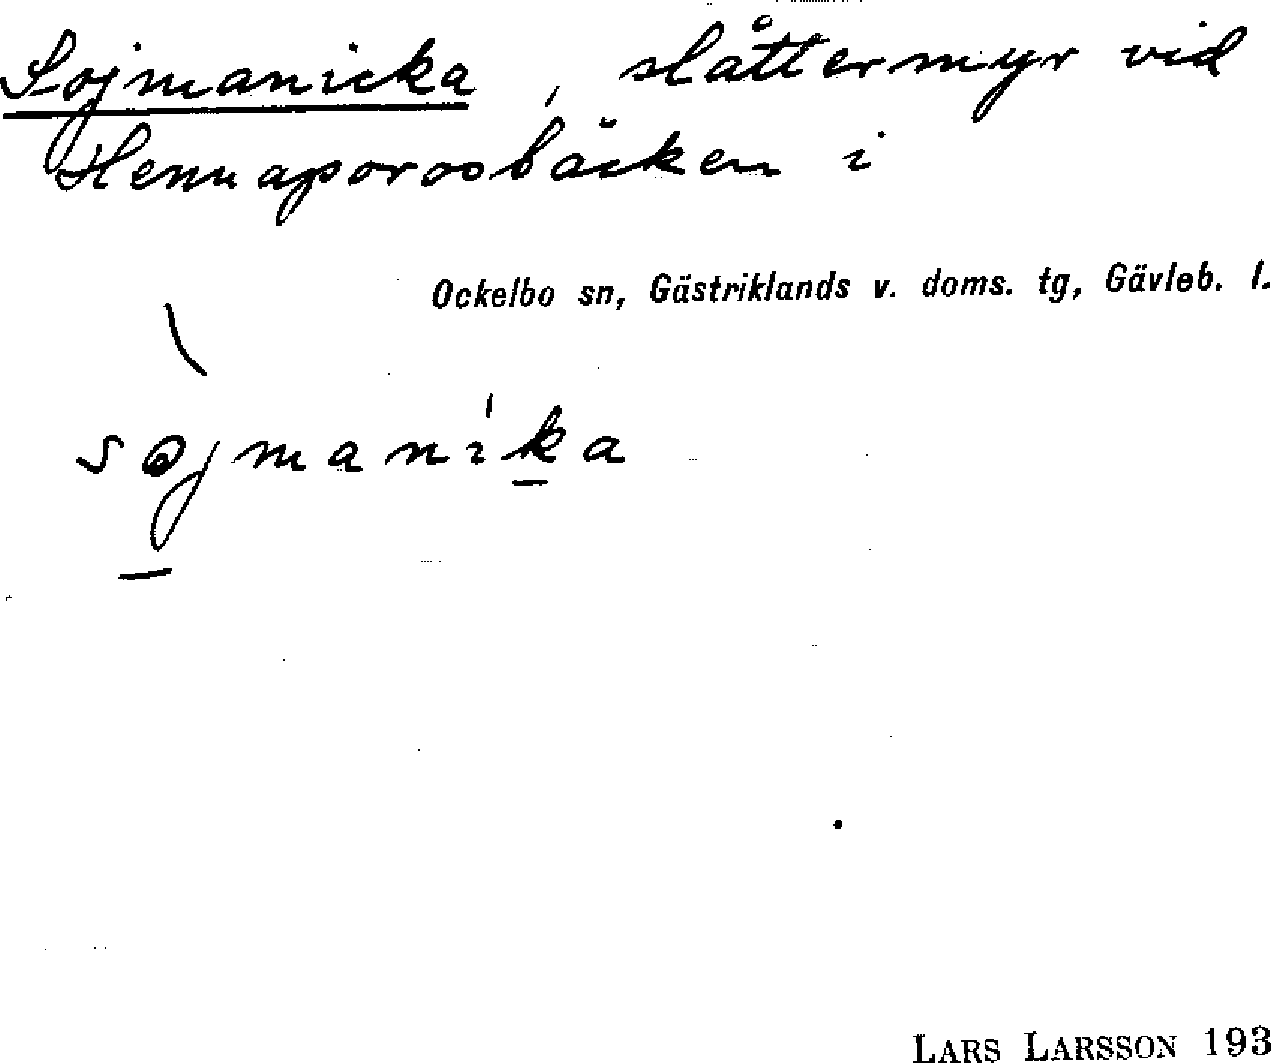 Sojmanicka, slåttermyr vid
Hennaporosbäcken i
Ockelbo sn, Gästriklands v. doms. tg, Gävleb. l.
søjmanika
LARS LARSSON 193